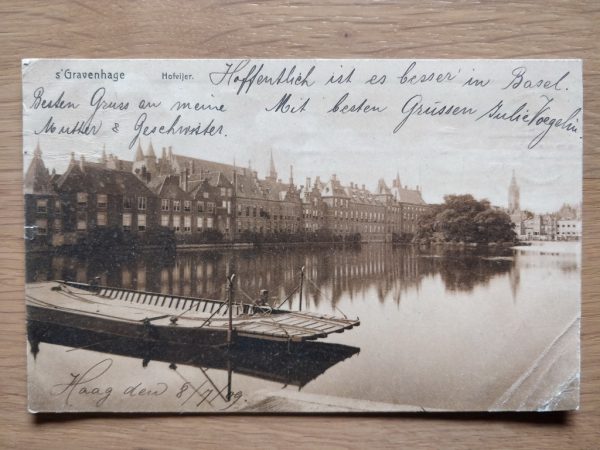 s'Gravenhage Hofvijer.
Hoffentlich ist es besser in Basel.
Besten Gruss an meine
Mutter & Geschwister.
Mit besten Grüssen Julie Voegelin
Haag den 8/7/09.